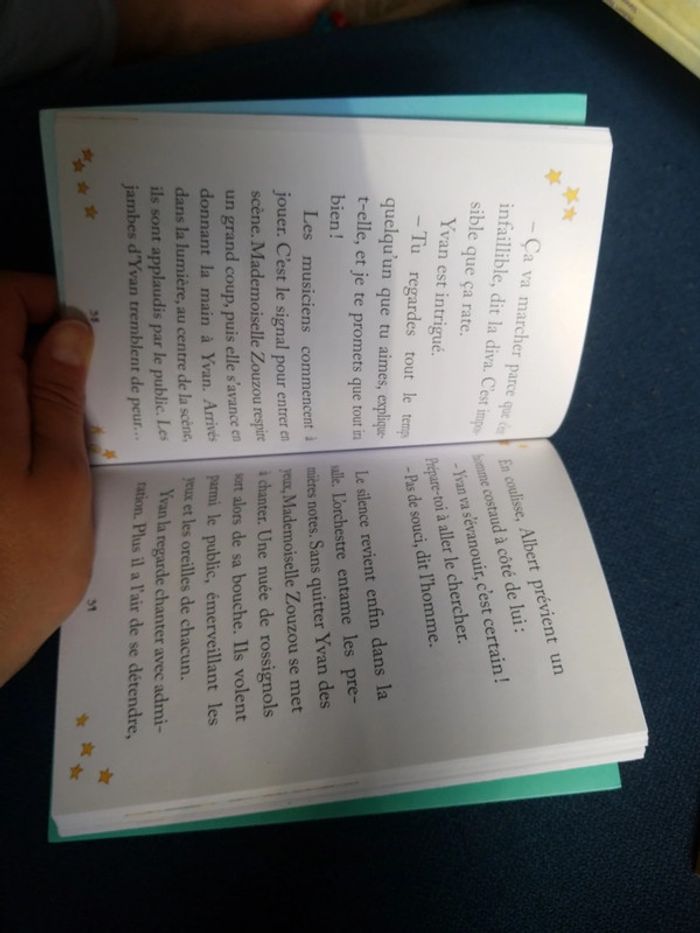 – Ça va marcher parce que c'est
infaillible, dit la diva. C'est impos-
sible que ça rate.
Yvan est intrigué.
– Tu regardes tout le temps
quelqu'un que tu aimes, explique-
t-elle, et je te promets que tout ira
bien !
Les musiciens commencent à
jouer. C'est le signal pour entrer en
scène. Mademoiselle Zouzou respire
un grand coup, puis elle s'avance en
donnant la main à Yvan. Arrivés
dans la lumière, au centre de la scène,
ils sont applaudis par le public. Les
jambes d'Yvan tremblent de peur…
38
En coulisse, Albert prévient un
homme costaud à côté de lui :
– Yvan va s'évanouir, c'est certain !
Prépare-toi à aller le chercher.
– Pas de souci, dit l'homme.
Le silence revient enfin dans la
salle. L'orchestre entame les pre-
mières notes. Sans quitter Yvan des
yeux, Mademoiselle Zouzou se met
à chanter. Une nuée de rossignols
sort alors de sa bouche. Ils volent
parmi le public, émerveillant les
yeux et les oreilles de chacun.
Yvan la regarde chanter avec admi-
ration. Plus il a l'air de se détendre,
39